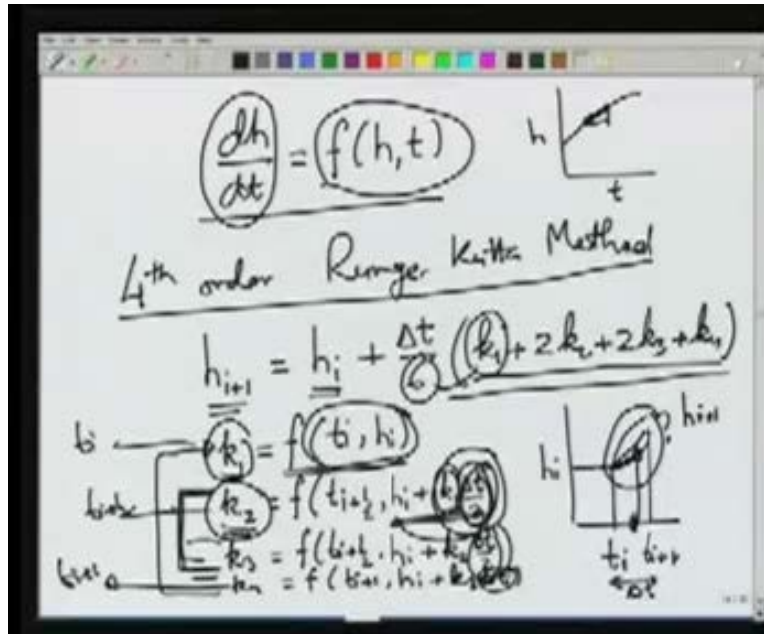 dh/dt = f(h,t)
h
t
4th order Runger Kutta Method
h_{i+1} = h_i + Δt/6 (k_1 + 2k_2 + 2k_3 + k_4)
t_i k_1 = f(t_i, h_i)
k_2 = f(t_{i+1/2}, h_i + k_1 Δt/2)
k_3 = f(t_{i+1/2}, h_i +
t_{i+1} = f(t_{i+1}, h_i +
h_i h_{i+1}
t_i t_{i+1}
Δt